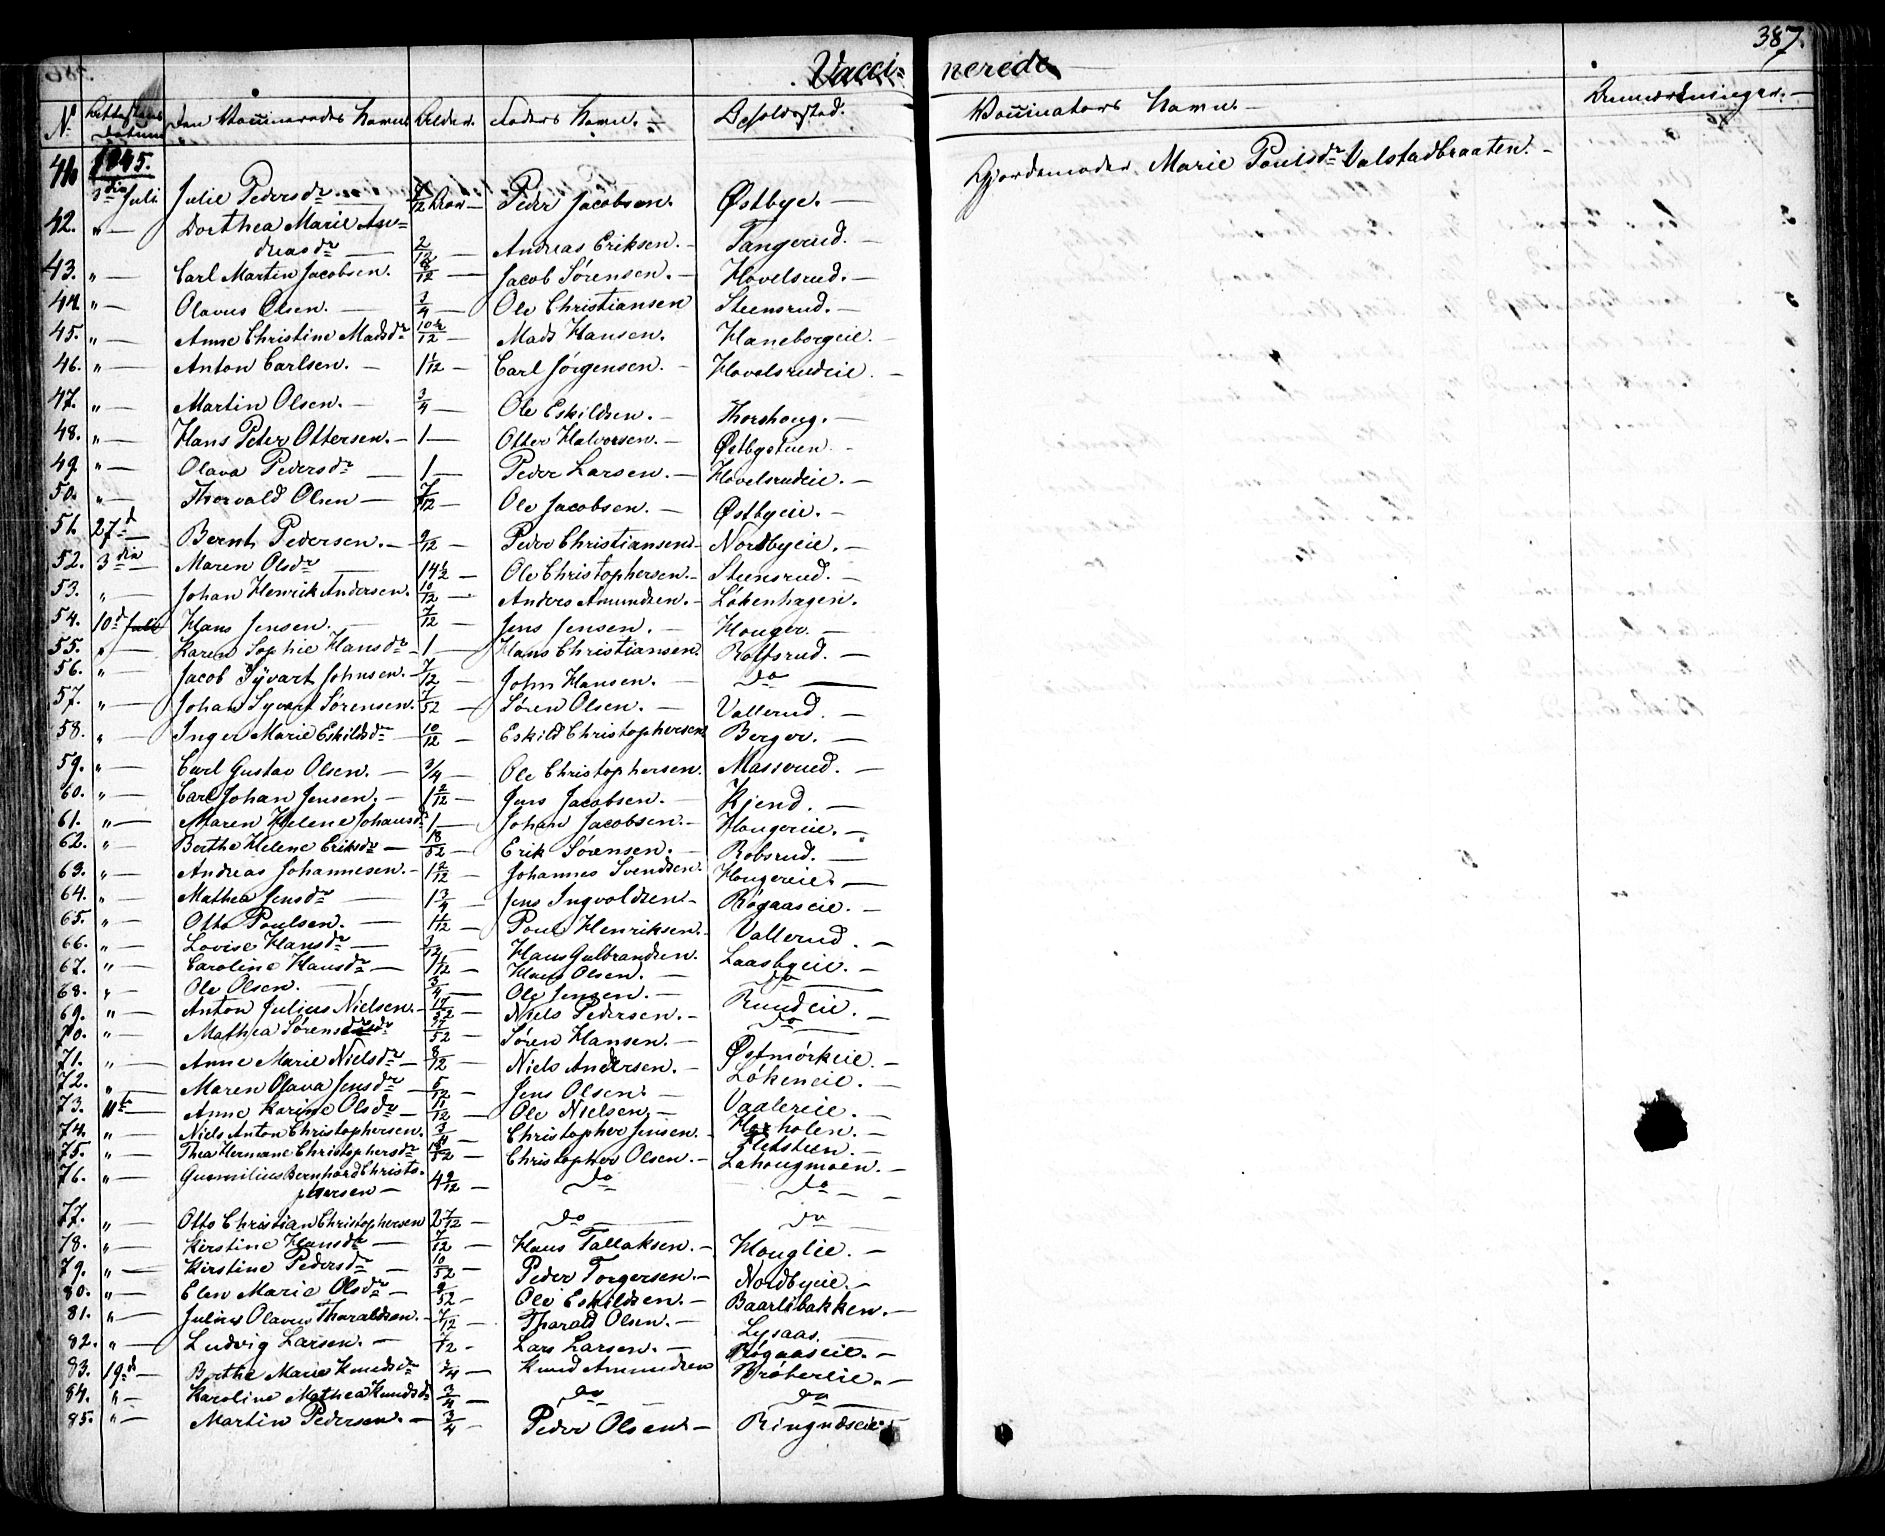 Vacci= nerede 387.
N. Attestens Datum Den Vaccineredes Navn. Alder. Faders Navn. Opholdssted. Vaccinators Navn. Anmærkninger.
41. 1845. 3die Juli Julie Pedersdr 4/12 Peder Jacobsen. Østbye. Gjordemoder Marie Poulsdr Valstadbraaten.
42. " Dorthea Marie An=
dreasdr 2/12 Andreas Eriksen. Tangerud.
43. " Carl Martin Jacobsen. 8/12 Jacob Sørensen. Hovelsrud.
44. " Olavus Olsen. 3/4 Ole Christiansen Steensrud.
45. " Anne Christine Madsdr 10½/12 Mads Hansen. Haneborgeie.
46. " Anton Carlsen. 1 1/12 Carl Jørgensen. Hovelsrudeie.
47. " Martin Olsen. 3/4 Ole Eskildsen. Thorshoug.
48. " Hans Peter Ottersen. 1 Otter Halvorsen. Østbystuen
49. " Olava Pedersdr 1 Peder Larsen. Hovelsrudeie.
50. " Thorvald Olsen 7/12 Ole Jacobsen. Østbyeie.
51. 27d Bernt Pedersen. 9/12 Peder Christiansen Nordbyeie.
52. 3die Maren Olsdr 14½ Ole Christophersen. Steensrud.
53. " Johan Henrik Andersen. 10/12 Anders Amundsen. Løkenhagen.
54. 10d Juli Hans Jensen. 7/12 Jens Jensen. Houger.
55. " Karen Sophie Hansdr 1 Hans Christiansen. Rolfsrud.
56. " Jacob Syvart Johnsen. 7/12 John Hansen. do
57. " Johan Syvert Sørensen. 7/52 Søren Olsen. Vallerud.
58. " Inger Marie Eskildsdr 10/12 Eskild Christophersen Berger.
59. " Carl Gustav Olsen. 3/4 Ole Christophersen. Masserud.
60. " Carl Johan Jensen. 1 2/12 Jens Jacobsen. Kjend.
61. " Maren Helene Johansdr 1 Johan Jacobsen. Hougereie.
62. " Berthe Helene Eriksdr 18/52 Erik Sørensen. Robsrud.
63. " Andreas Johannesen. 1 2/12 Johannes Svendsen. Hougereie.
64. " Mathea Jensdr 1 3/4 Jens Ingvoldsen. Røgaaseie.
65. " Otto Poulsen. 1 1/12 Poul Henriksen. Vallerud.
66. " Lovise Hansdr 3/12 Hans Gulbrandsen. Laasbyeie.
67. " Caroline Hansdr 1 1/12 Hans Olsen. do
68. " Ole Olsen. 3/4 Ole Jensen. Rundeie.
69. " Anton Julius Nielsen. 17/52 Niels Pedersen. do
70. " Mathea Sørensdr 37/52 Søren Hansen.
71. " Anne Marie Nielsdr 8/12 Niels Andersen. Østmørkeie.
72. " Maren Olava Jensdr 5/12 Jens Olsen. Løkeneie.
73. 11te Anne Karine Olsdr 11/12 Ole Nielsen. Vaalereie.
74. " Niels Anton Christophersen. 3/4 Christopher Jensen. Herholen.
75. " Thea Hermane Christophersdr 18/52 Christopher Olsen. Lahougmoen.
76. " Gunnilius Bernhard Christo=
phersen 4 9/12 do do
77. " Otto Christian Christophersen 2 7/12 do do
78. " Kirstine Hansdr 7/12 Hans Tallaksen. Houglie.
79. " Kirstine Pedersdr 10/52 Peder Torgersen. Nordbyeie.
80. " Elen Marie Olsdr 9/52 Ole Eskildsen. Baarlibakken.
81. " Julius Olavus Tharaldsen. 7/12 Tharald Olsen. Lysaas.
82. " Ludvig Larsen. 7/12 Lars Larsen. Røgaaseie.
83. 19d Berthe Marie Knudsdr 3/4 Knud Amundsen Brøtereie.
84. " Karoline Mathea Knudsdr 3/4 do do
85. " Martin Pedersen. 3/4 Peder Olsen. Ringnæseie.